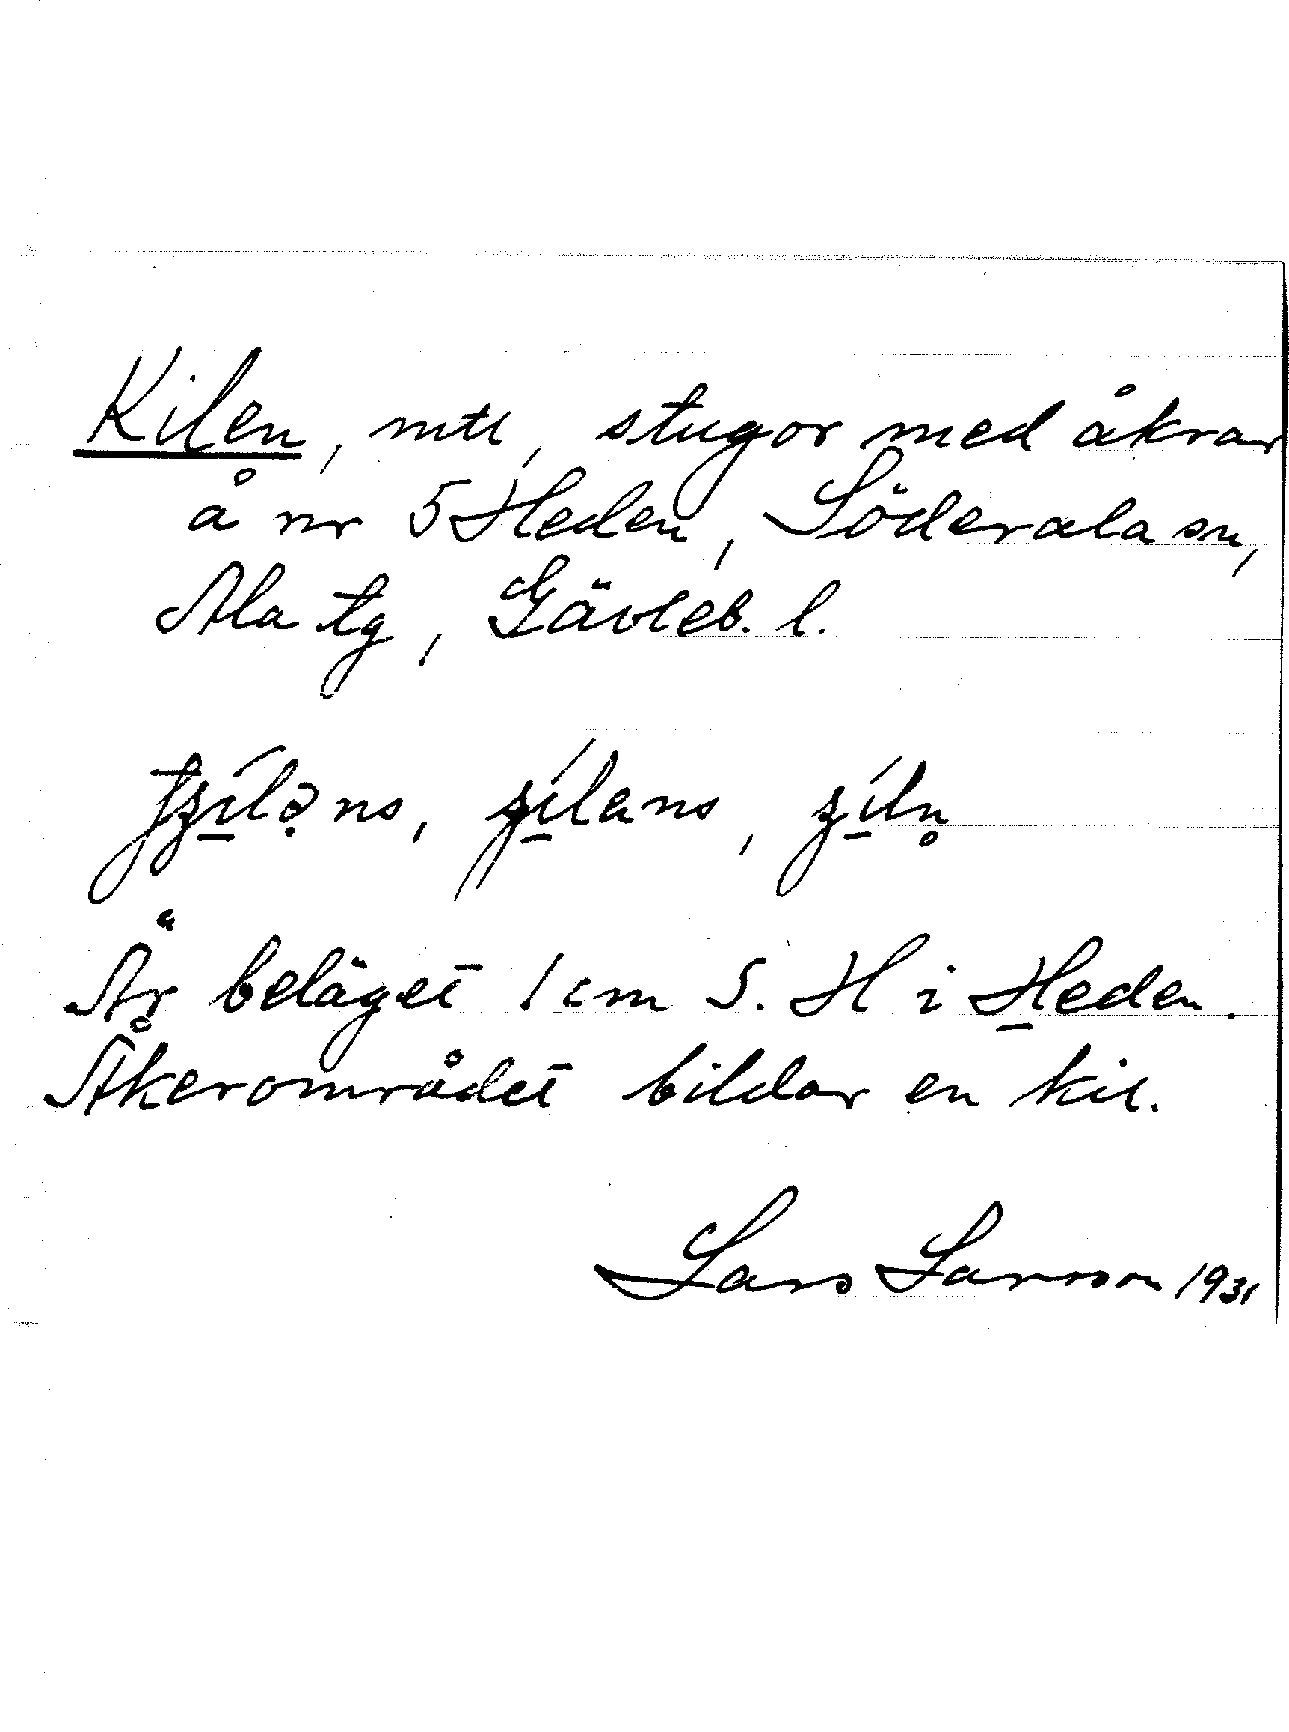 Kilen, mtl, stugor med åkrar
å nr 5 Heden, Söderala sn,
Ala tg, Gävleb. l.
Är beläget 1 cm S. H i Heden.
Åkerområdet bildar en kil.
Lars Larsson 1931